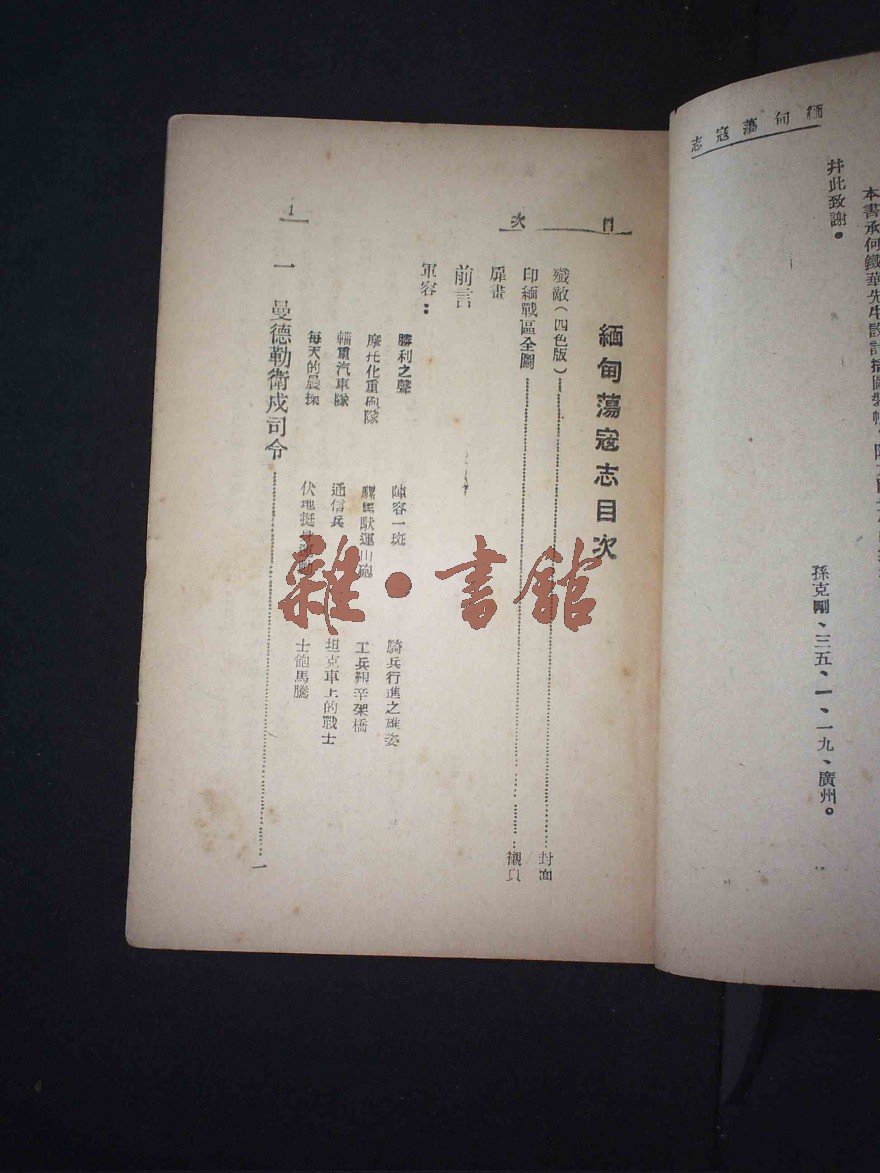 緬甸蕩寇志
本書承何鐵華先生設計插圖裝幀
幷此致謝。
孫克剛、三五、一、一九、廣州。
目次
緬甸蕩寇志目次
殲敵（四色版）……封面
印緬戰區全圖……襯頁
扉畫
前言
軍容：
勝利之聲 陣容一斑 騎兵行進之雄姿
摩托化重砲隊 騾馬馱運山砲 工兵艱辛架橋
輜重汽車隊 通信兵 坦克車上的戰士
每天的晨操 伏地挺 士飽馬騰
一 曼德勒衛戍司令……一
1
雜·書館